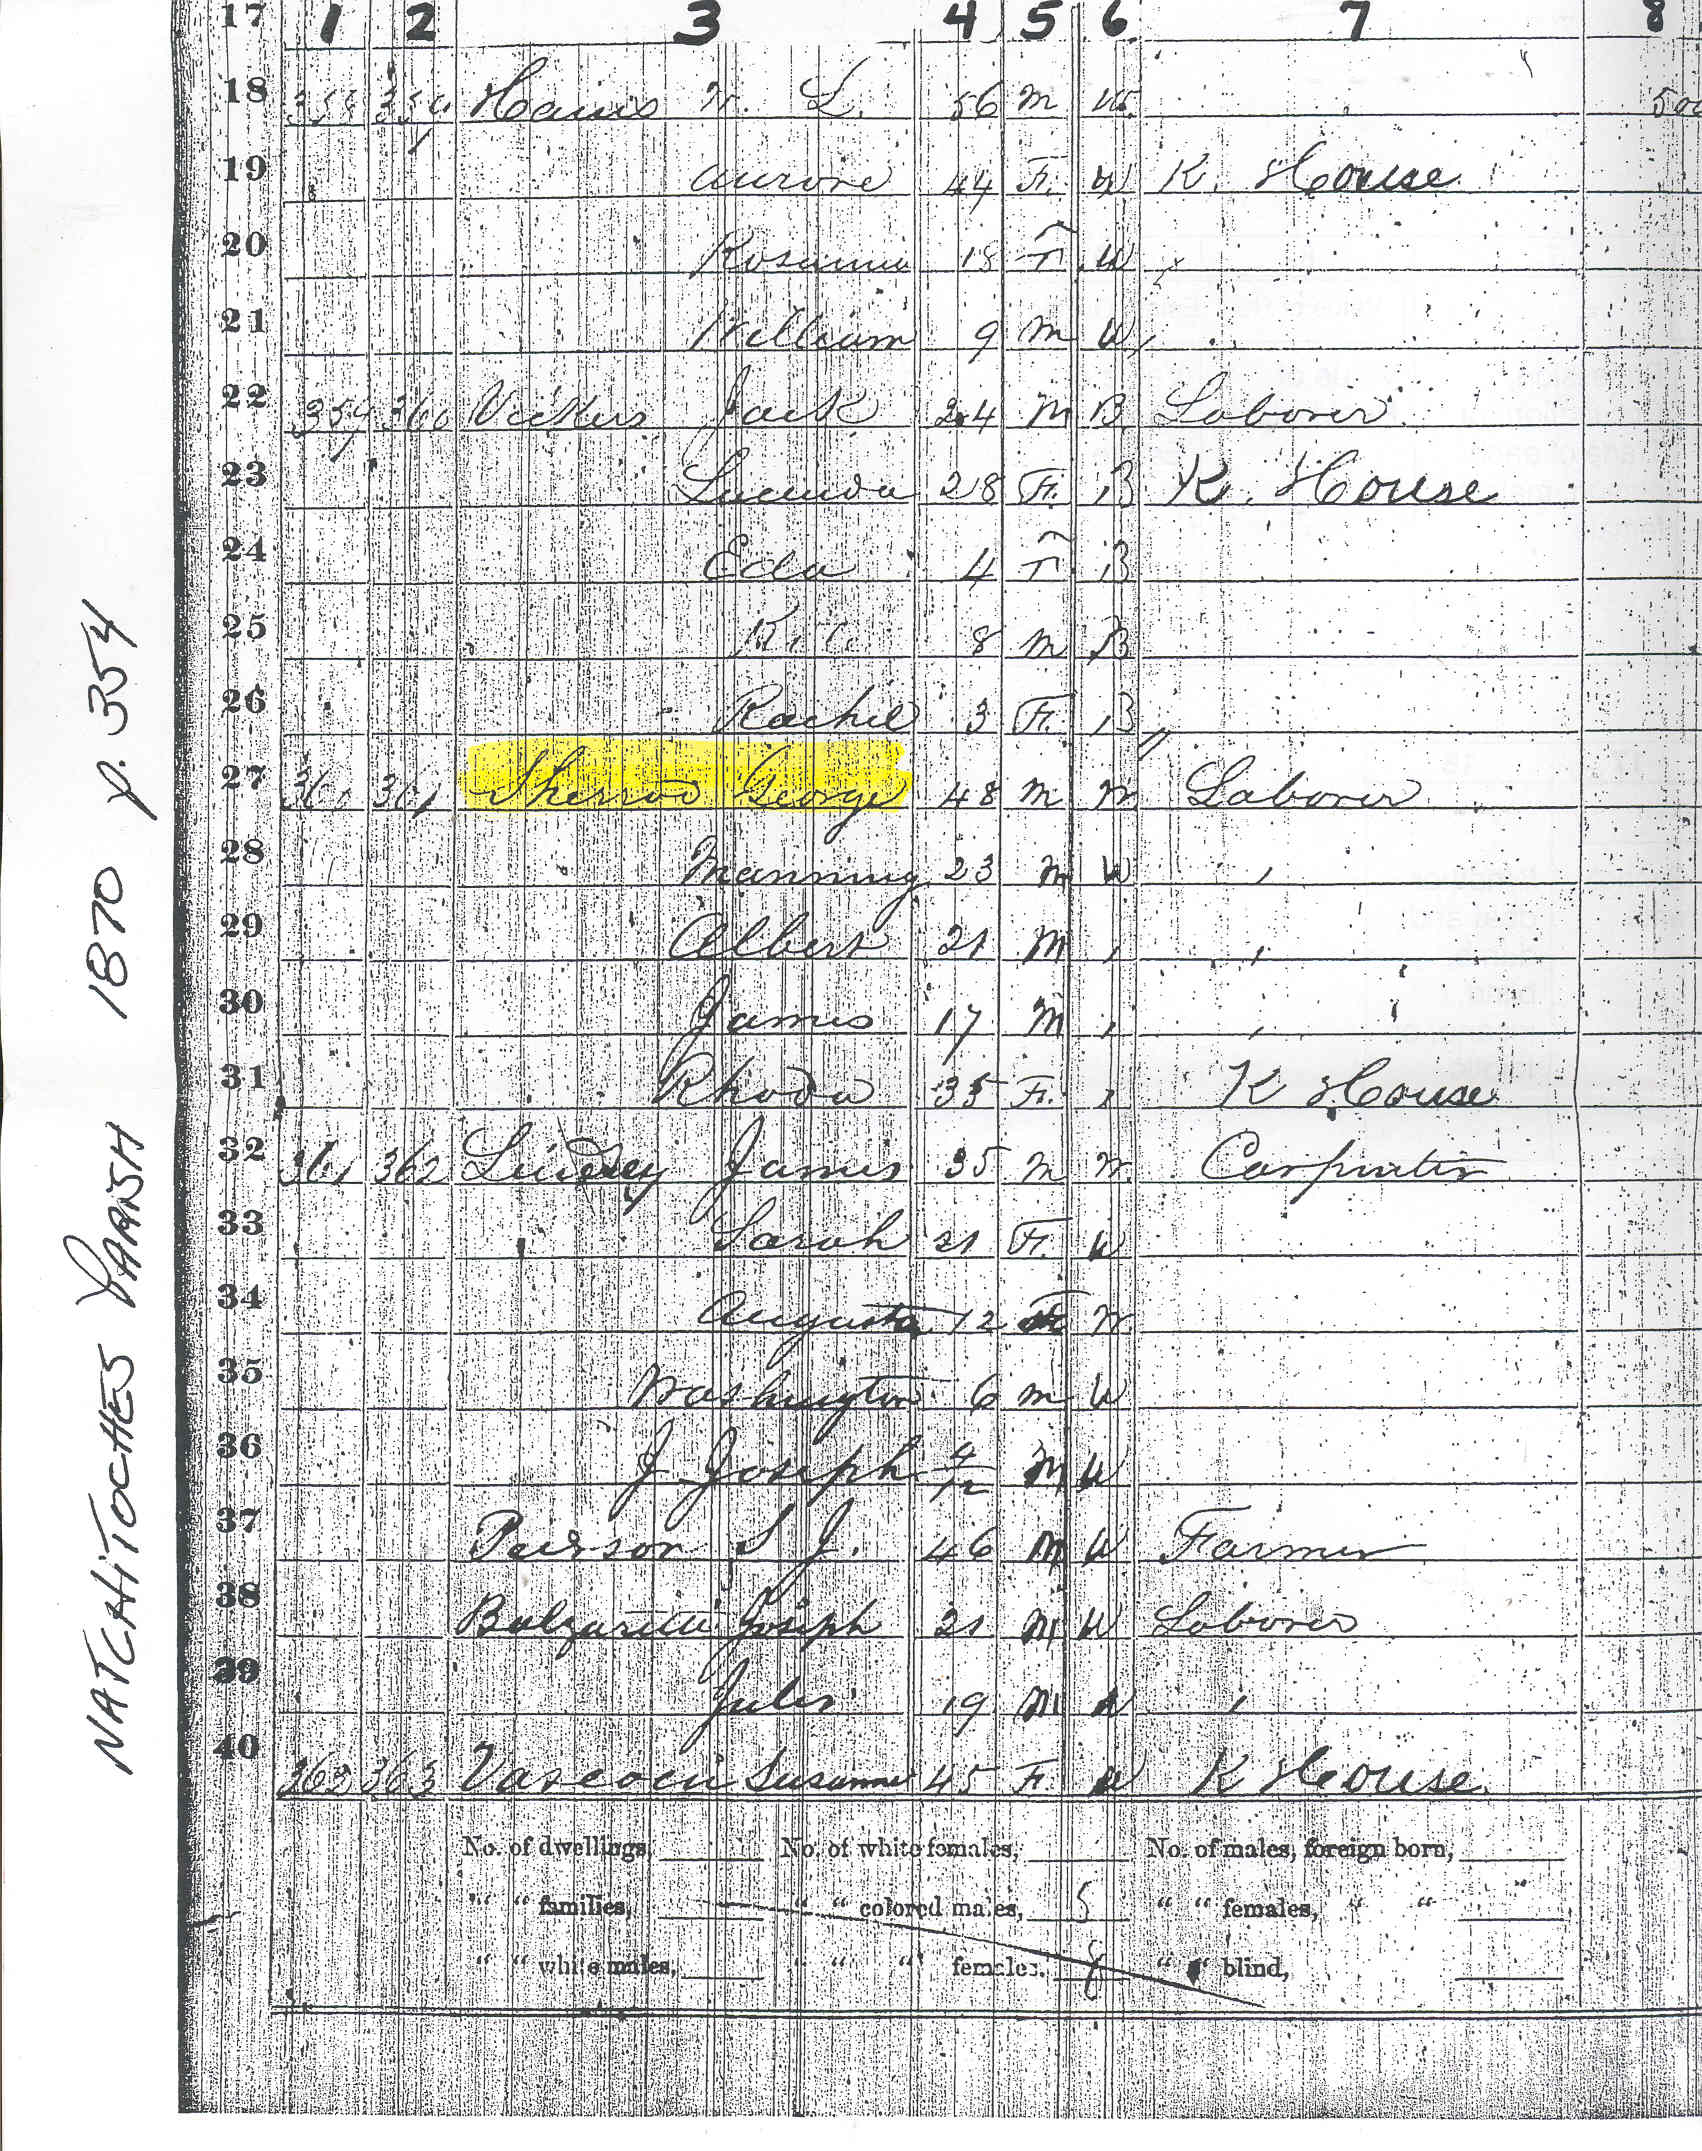 NATCHITOCHES PARISH 1870 p. 354
17 1 2 3 4 5 6 7 8
18 358 359 W. L. 56 M W 500
19 Aurore 44 F. W K. House
20 18 F W
21 William 9 M W
22 359 360 Jack 24 M B Laborer
23 Lucinda 28 F. B K. House
24 Eda 4 F B
25 8 M B
26 Rachel 3 F. B
27 360 361 Sherrod George 48 M W Laborer
28 Manning 23 M W ,
29 Albert 21 M , ,
30 James 17 M , ,
31 Rhoda 35 F. , K House
32 361 362 Lindsey James 35 M W. Carpenter
33 Sarah 21 F. W
34 Augusta 12 F W.
35 Washington 6 M W
36 J Joseph 4/12 M W
37 Pierson S J. 46 M W Farmer
38 Joseph 21 M W Laborer
39 Jules 19 M W ,
40 363 Susanne 45 F. W K House
No. of dwellings, No. of white females, No. of males, foreign born,
" " families, " " colored males, 5 " " females, " "
" " white males, " " " females, 8 " " blind,